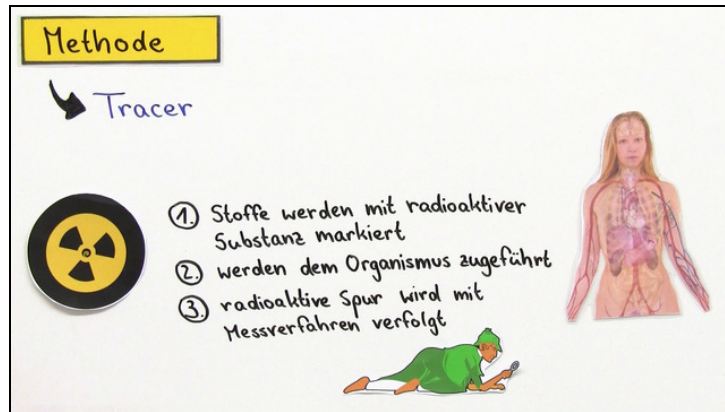 Methode
Tracer
1. Stoffe werden mit radioaktiver
Substanz markiert
2. werden dem Organismus zugeführt
3. radioaktive Spur wird mit
Messverfahren verfolgt